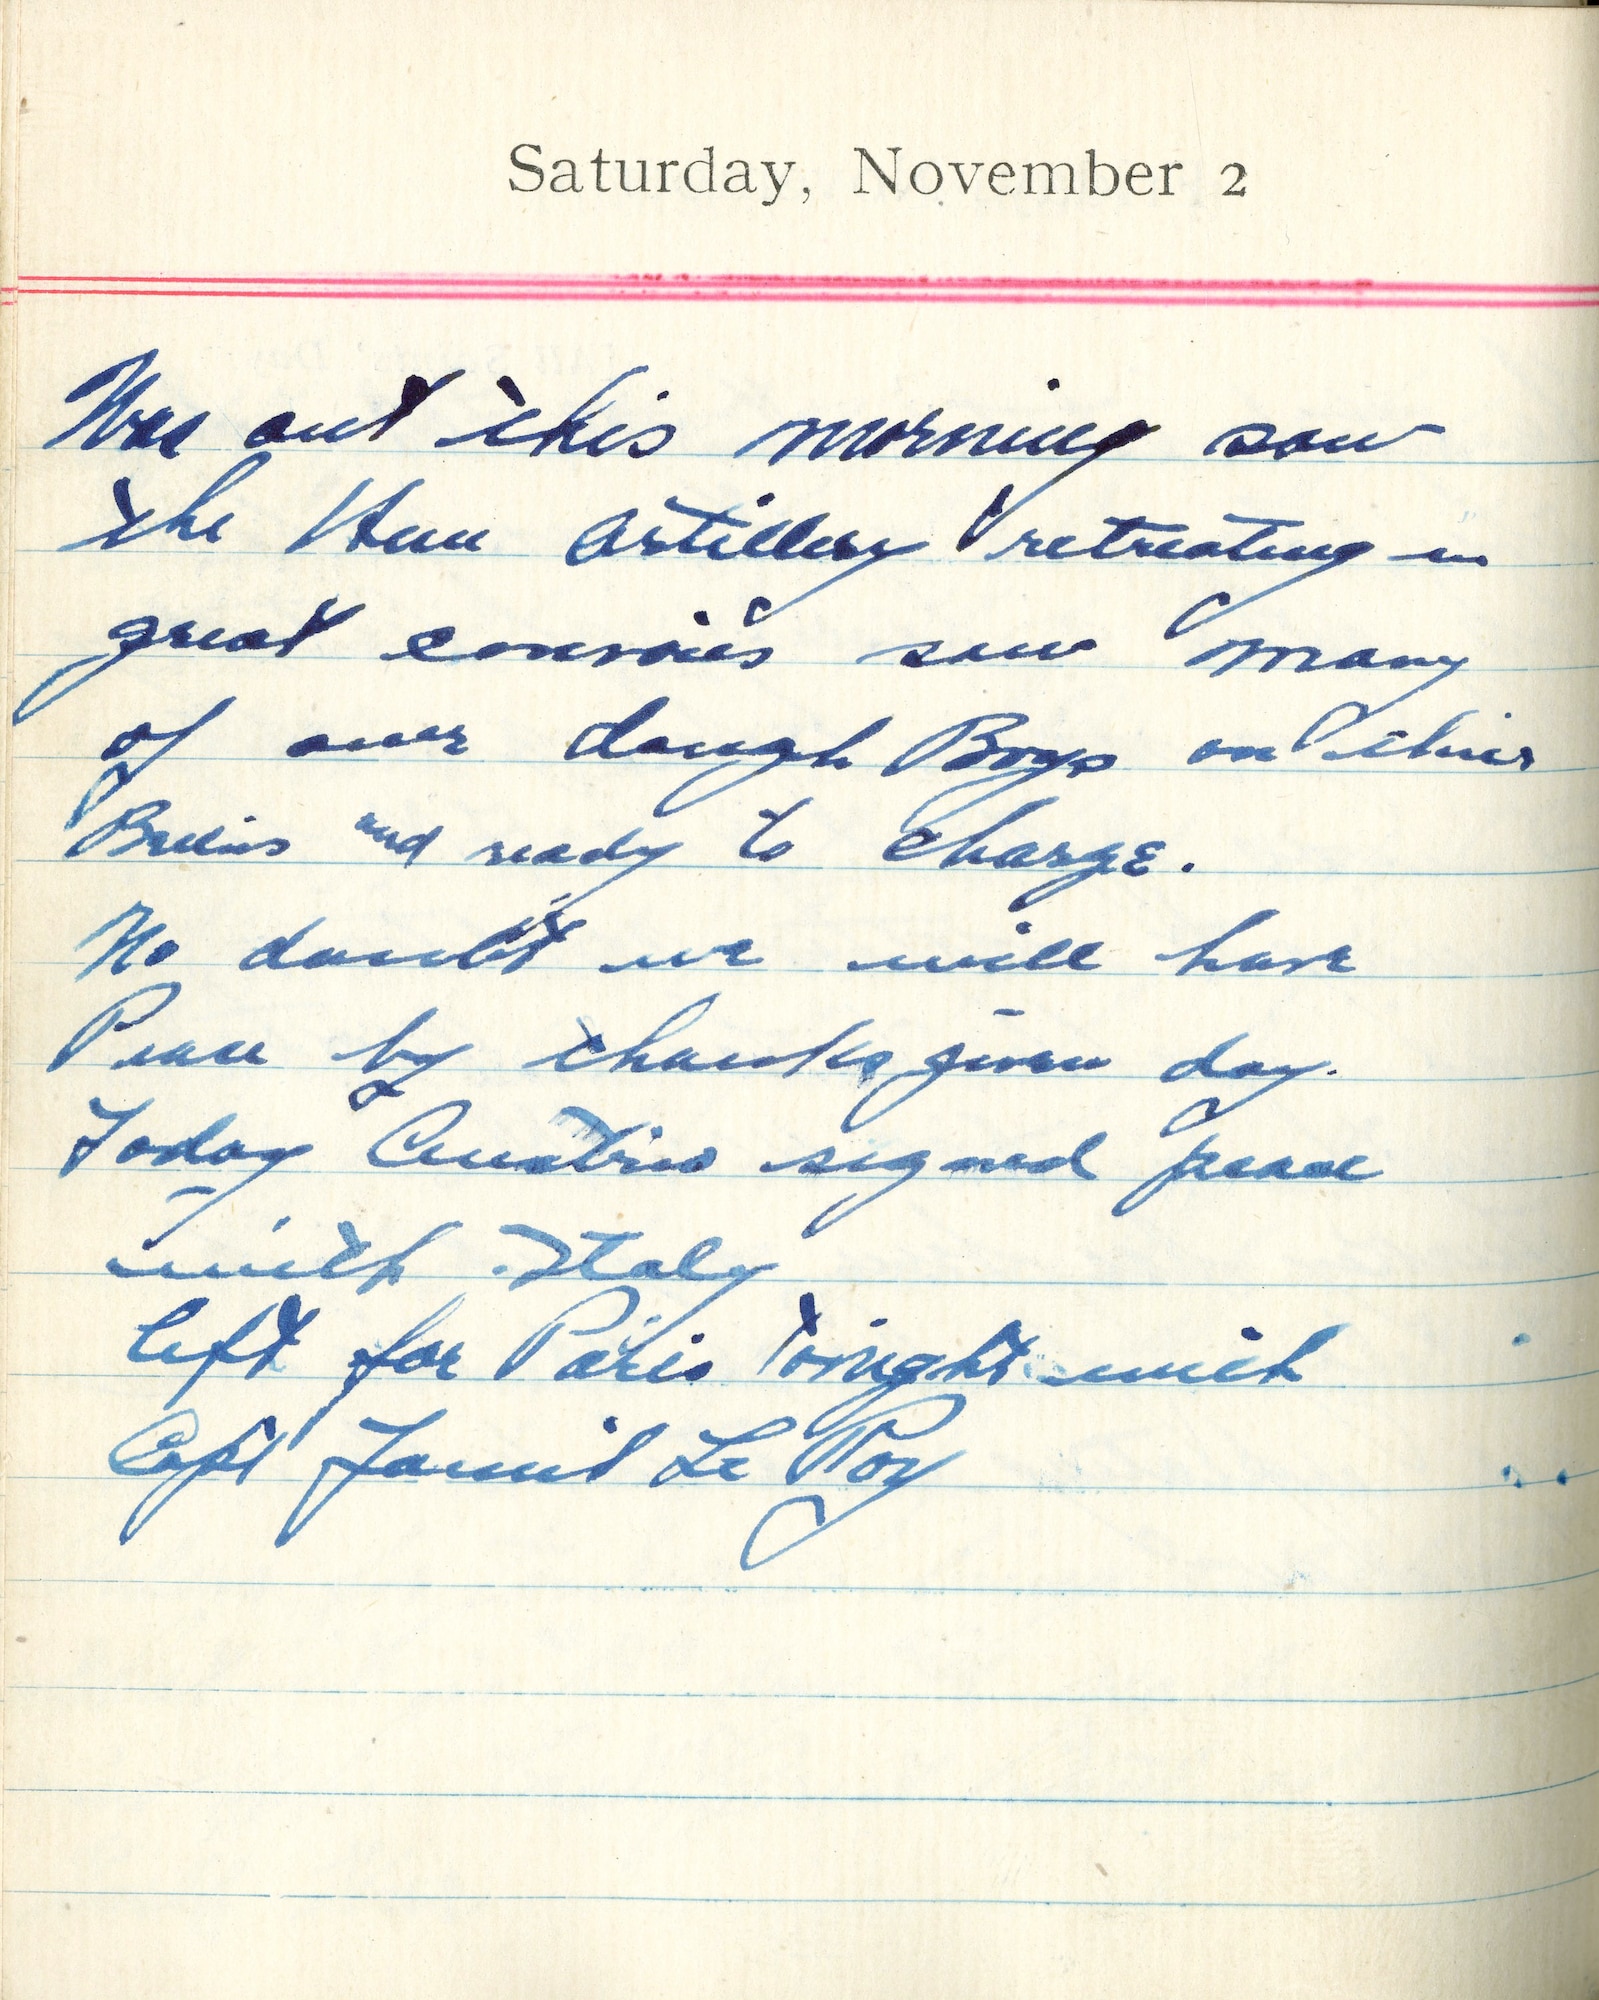 Saturday, November 2
Was out this morning saw
the Hun Artillery retreating in
great convoies saw many
of ouer dough Boys on thier
Bellies and ready to charge.
No doubt we will have
Peace by thanksgiven day.
Today Austria signed peace
with Italy
left for Paris tonight with
Capt Le Roy